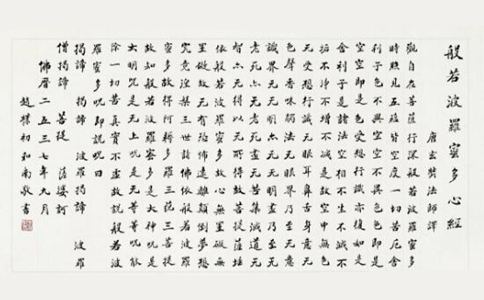 般若波羅蜜多心經
唐玄奘法師譯
觀自在菩薩行深般若波羅蜜多
時照見五蘊皆空度一切苦厄舍
利子色不異空空不異色色即是
空空即是色受想行識亦復如是
舍利子是諸法空相不生不滅不
垢不淨不增不減是故空中无色
无受想行識无眼耳鼻舌身意无
色聲香味觸法无眼界乃至无意
識界无无明亦无无明盡乃至无
老死亦无老死盡无苦集滅道无
智亦无得以无所得故菩提薩埵
依般若波羅蜜多故心无罣礙无
罣礙故无有恐怖遠離顛倒夢想
究竟涅槃三世諸佛依般若波羅
蜜多故得阿耨多羅三藐三菩提
故知般若波羅蜜多是大神咒是
大明咒是无上咒是无等等咒能
除一切苦真實不虛故說般若波
羅蜜多咒即說咒曰
揭諦 揭諦 波羅揭諦 波羅
僧揭諦 菩提 薩婆訶
佛曆二五三七年元月
趙樸初和南敬書